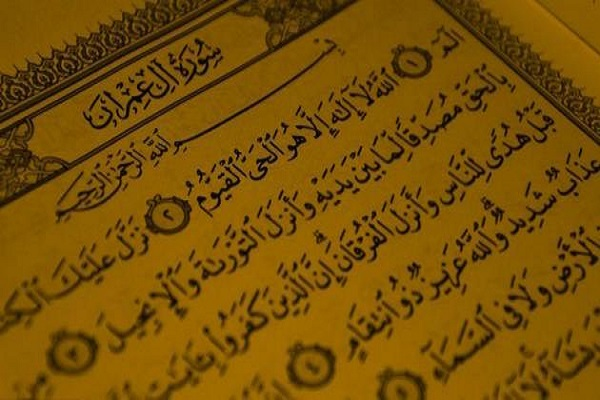 سُورَةُ آلِ عِمْرَانَ
بِسْمِ اللَّهِ الرَّحْمَٰنِ الرَّحِيمِ
الٓمٓ ١ اللَّهُ لَا إِلَٰهَ إِلَّا هُوَ الْحَيُّ الْقَيُّومُ ٢ نَزَّلَ عَلَيْكَ
بِالْحَقِّ مُصَدِّقًا لِّمَا بَيْنَ يَدَيْهِ وَأَنزَلَ التَّوْرَىٰةَ وَالْإِنجِيلَ ٣
قَبْلُ هُدًى لِّلنَّاسِ وَأَنزَلَ الْفُرْقَانَ ۗ إِنَّ الَّذِينَ كَفَرُوا بِـَٔايَٰتِ
عَذَابٌ شَدِيدٌ ۗ وَاللَّهُ عَزِيزٌ ذُو انتِقَامٍ ٤
الْأَرْضِ وَلَا فِي السَّمَاءِ ٥